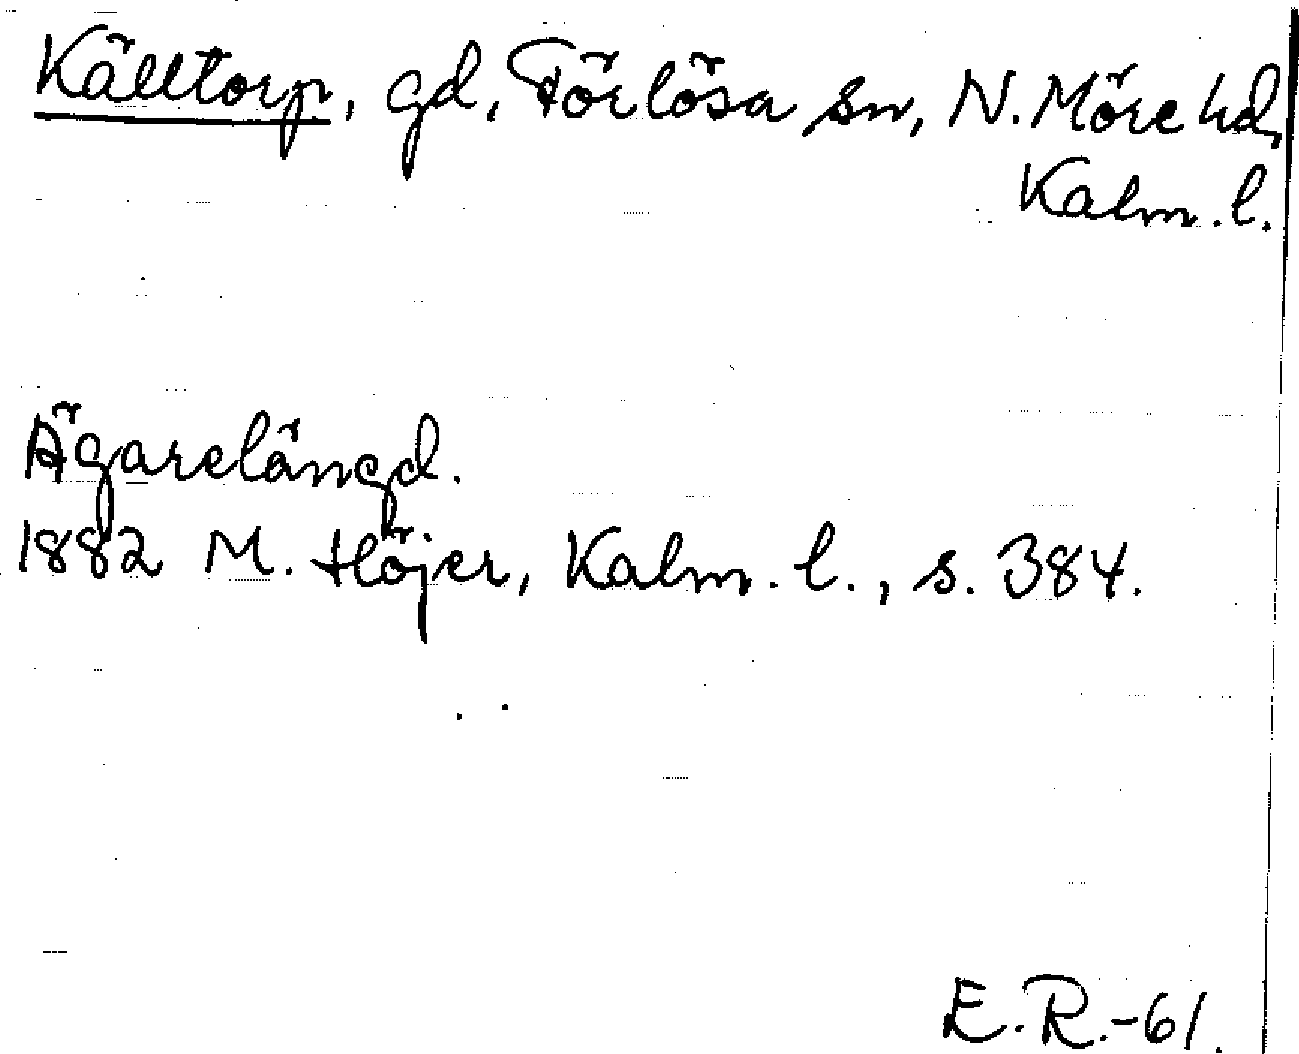 Källtorp, gd, Förlösa sn, N. Möre hd,
Kalm. l.
Ägarelängd.
1882 M. Höjer, Kalm. l., s. 384.
E. R. -61.